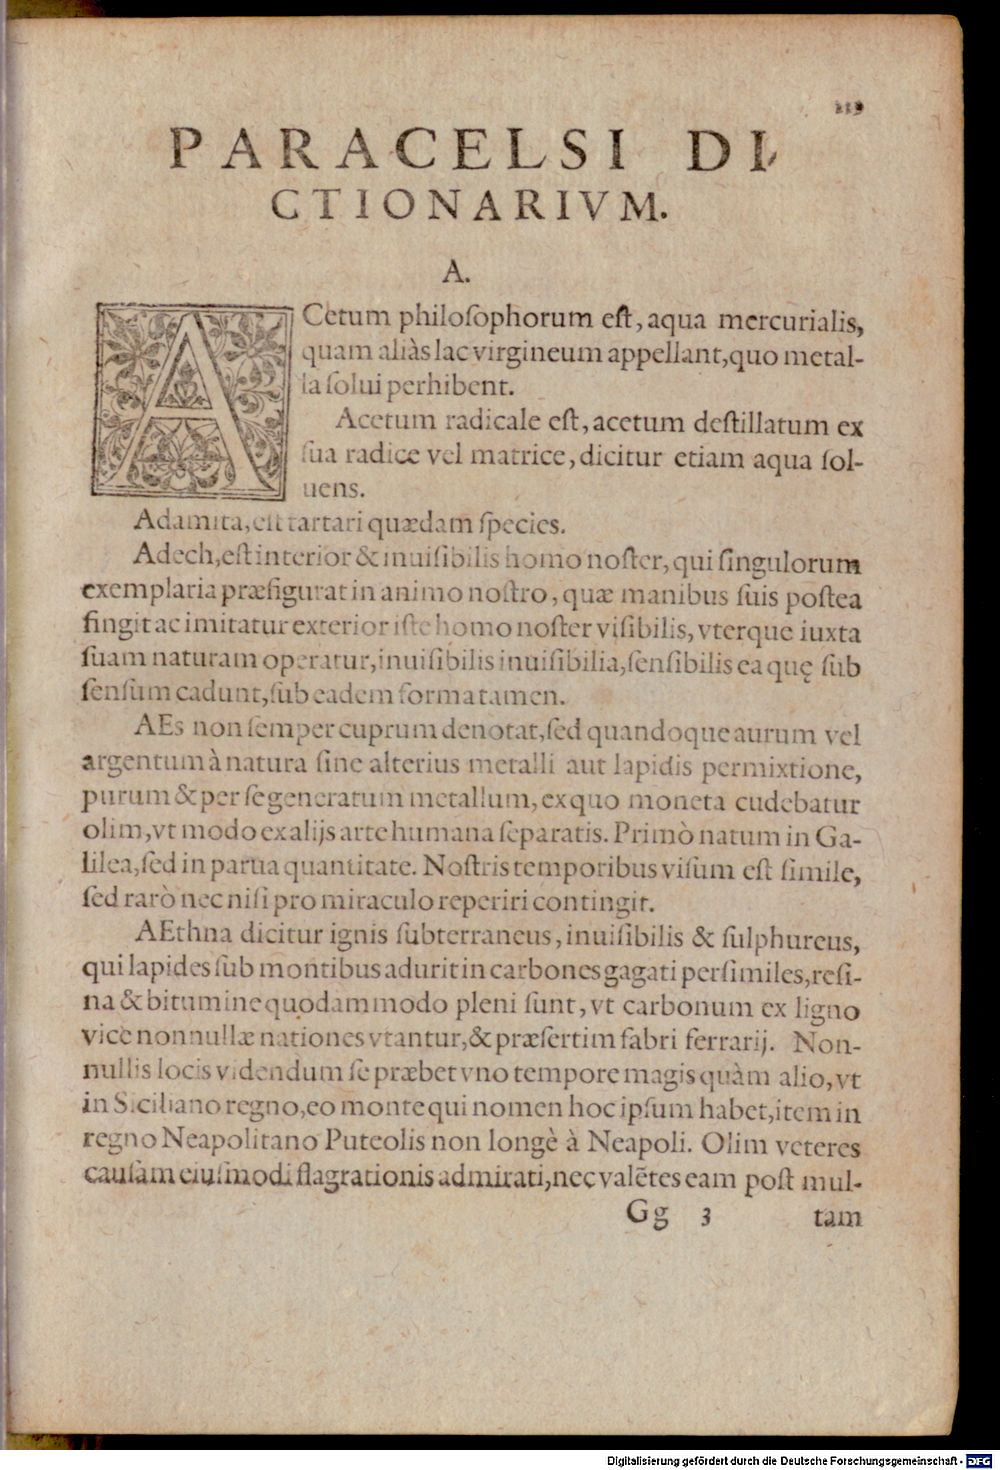 119
PARACELSI DI-
CTIONARIVM.
A.
ACetum philoſophorum eſt, aqua mercurialis,
quam aliàs lac virgineum appellant, quo metal-
la ſolui perhibent.
Acetum radicale eſt, acetum deſtillatum ex
ſua radice vel matrice, dicitur etiam aqua ſol-
uens.
Adamita, eſt tartari quædam ſpecies.
Adech, eſt interior & inuiſibilis homo noſter, qui ſingulorum
exemplaria præfigurat in animo noſtro, quæ manibus ſuis poſtea
fingit ac imitatur exterior iſte homo noſter viſibilis, vterque iuxta
ſuam naturam operatur, inuiſibilis inuiſibilia, ſenſibilis ea quę ſub
ſenſum cadunt, ſub eadem forma tamen.
AEs non ſemper cuprum denotat, ſed quandoque aurum vel
argentum à natura ſine alterius metalli aut lapidis permixtione,
purum & per ſe generatum metallum, ex quo moneta cudebatur
olim, vt modo ex alijs arte humana ſeparatis. Primò natum in Ga-
lilea, ſed in parua quantitate. Noſtris temporibus viſum eſt simile,
ſed rarò nec niſi pro miraculo reperiri contingit.
AEthna dicitur ignis ſubterraneus, inuiſibilis & ſulphureus,
qui lapides ſub montibus adurit in carbones gagati perſimiles, reſi-
na & bitumine quodammodo pleni ſunt, vt carbonum ex ligno
vice nonnullæ nationes vtantur, & præſertim fabri ferrarij. Non-
nullis locis videndum ſe præbet vno tempore magis quàm alio, vt
in Siciliano regno, eo monte qui nomen hoc ipſum habet, item in
regno Neapolitano Puteolis non longè à Neapoli. Olim veteres
cauſam eiuſmodi flagrationis admirati, nec valẽtes eam poſt mul-
Gg 3 tam
Digitalisierung gefördert durch die Deutsche Forschungsgemeinschaft - DFG